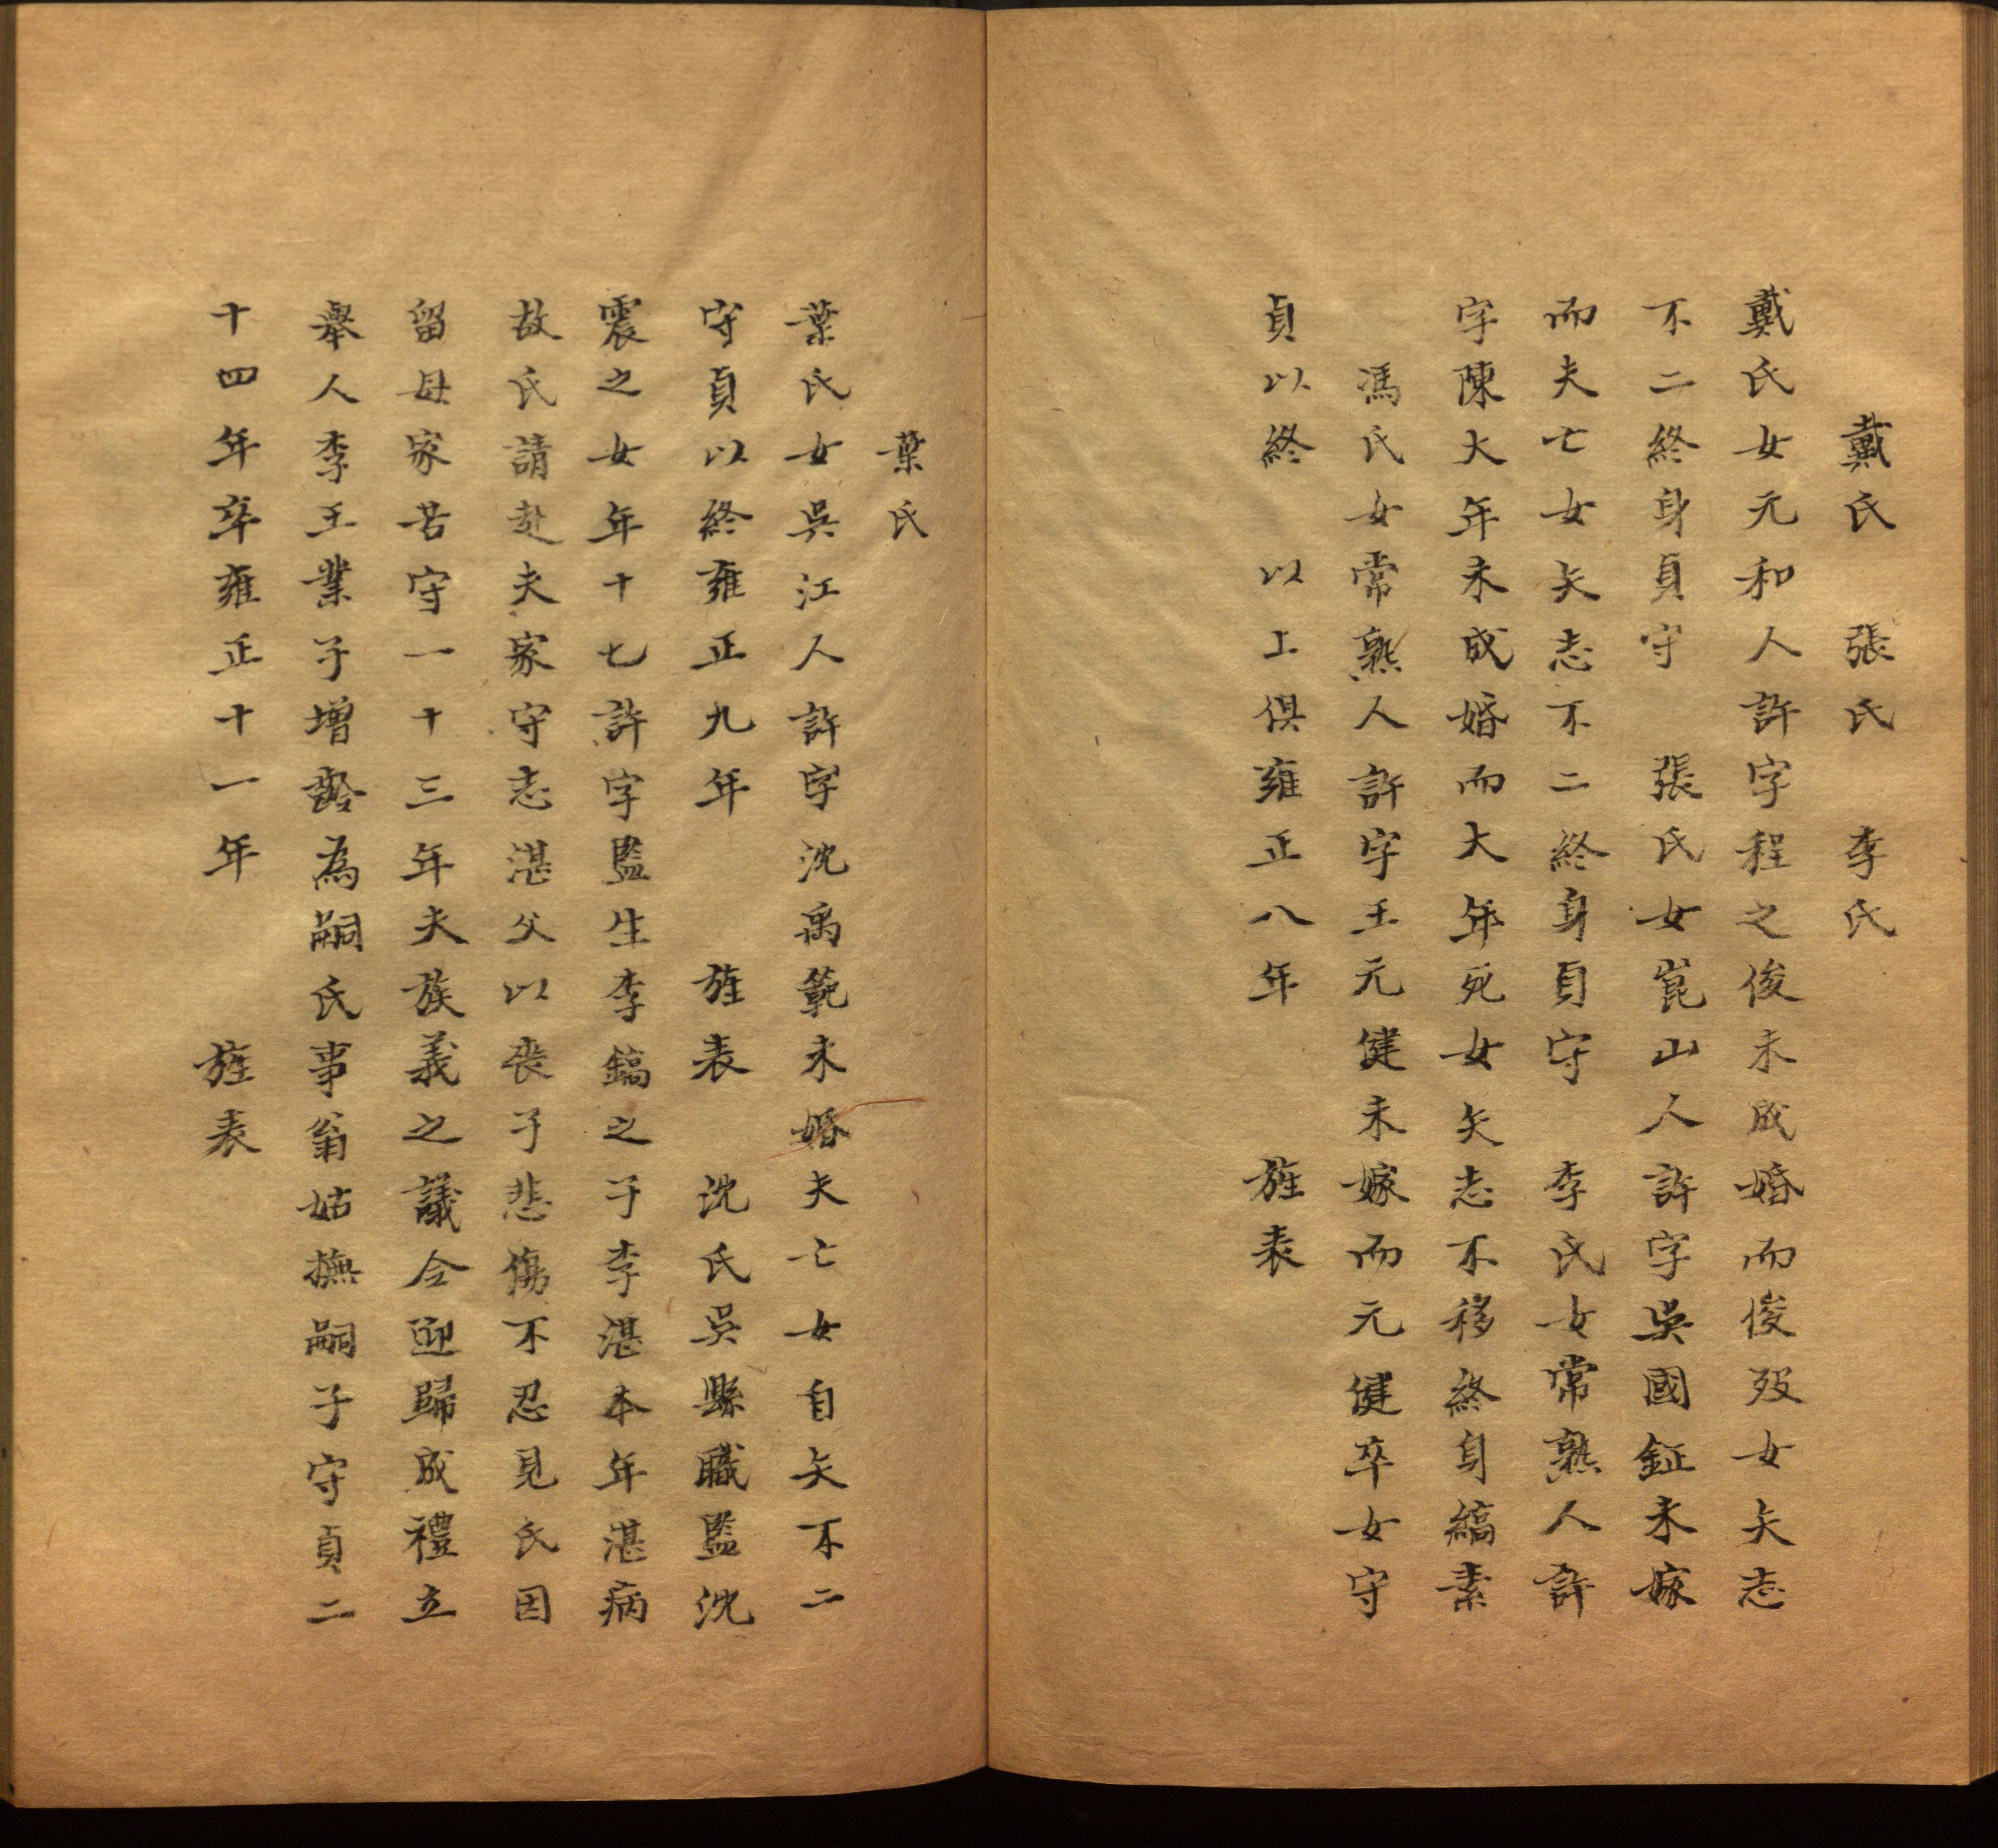 戴氏　張氏　李氏
戴氏女元和人許字程之俊未成婚而俊歿女矢志
不二終身貞守　張氏女崑山人許字吳國鉦未嫁
而夫亡女矢志不二終身貞守　李氏女常熟人許
字陳大年未成婚而大年死女矢志不移終身縞素
馮氏女常熟人許字王元健未嫁而元健卒女守
貞以終　以上俱雍正八年　旌表
葉氏
葉氏女吳江人許字沈禹範未婚夫亡女自矢不二
守貞以終雍正九年　旌表　沈氏吳縣職監沈
震之女年十七許字監生李鎬之子李湛本年湛病
故氏請赴夫家守志湛父以喪子悲傷不忍見氏因
留母家苦守一十三年夫族義之議令迎歸成禮立
舉人李王業子增齡為嗣氏事翁姑撫嗣子守貞二
十四年卒雍正十一年　旌表